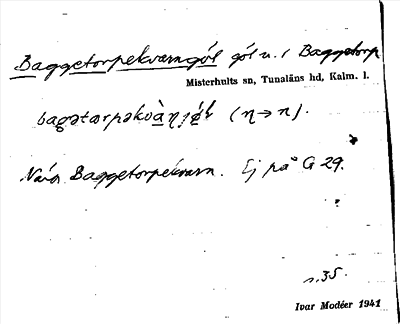 Baggetorpekvarngöl göl n. / Baggetorp
Misterhults sn, Tunaläns hd, Kalm. l.
(ɳ→n).
Nära Baggetorpekvarn. Ej på G 29.
s. 35.
Ivar Modéer 1941